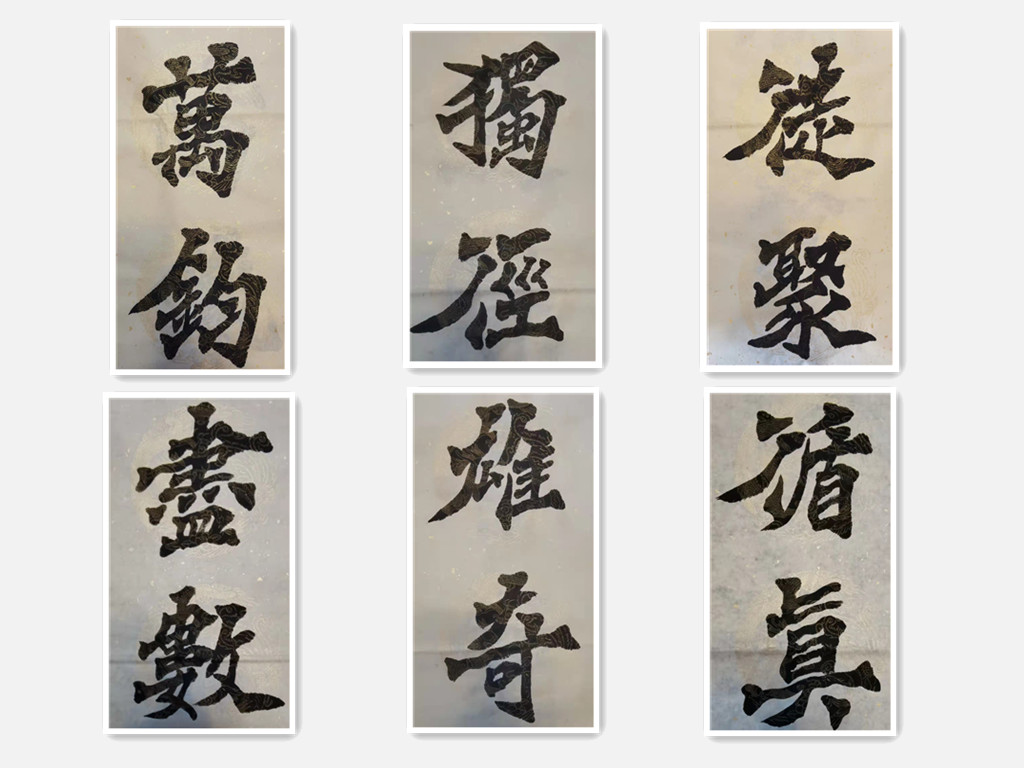 萬鈞
獨徑
徒聚
盡數
雄奇
循真